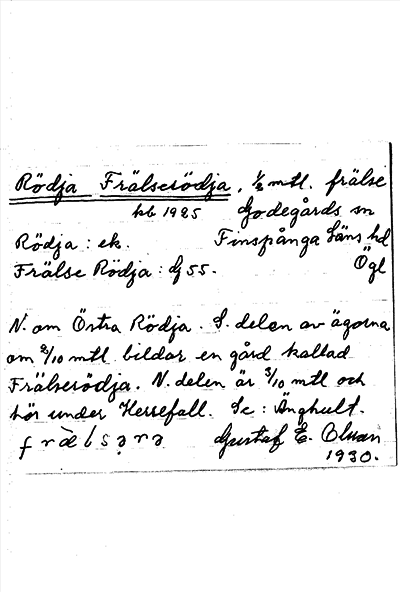 Rödja Frälserödja, 1/2 mtl. frälse
kb 1925 Godegårds sn
Rödja : ek. Finspånga läns hd
Frälse Rödja : G 55. Ögl
N. om Östra Rödja. S. delen av ägorna
om 2/10 mtl bildar en gård kallad
Frälserödja. N. delen är 3/10 mtl och
hör under Kersefall. Se : Änghult.
frälsərə Gustaf E. Olsson
1930.